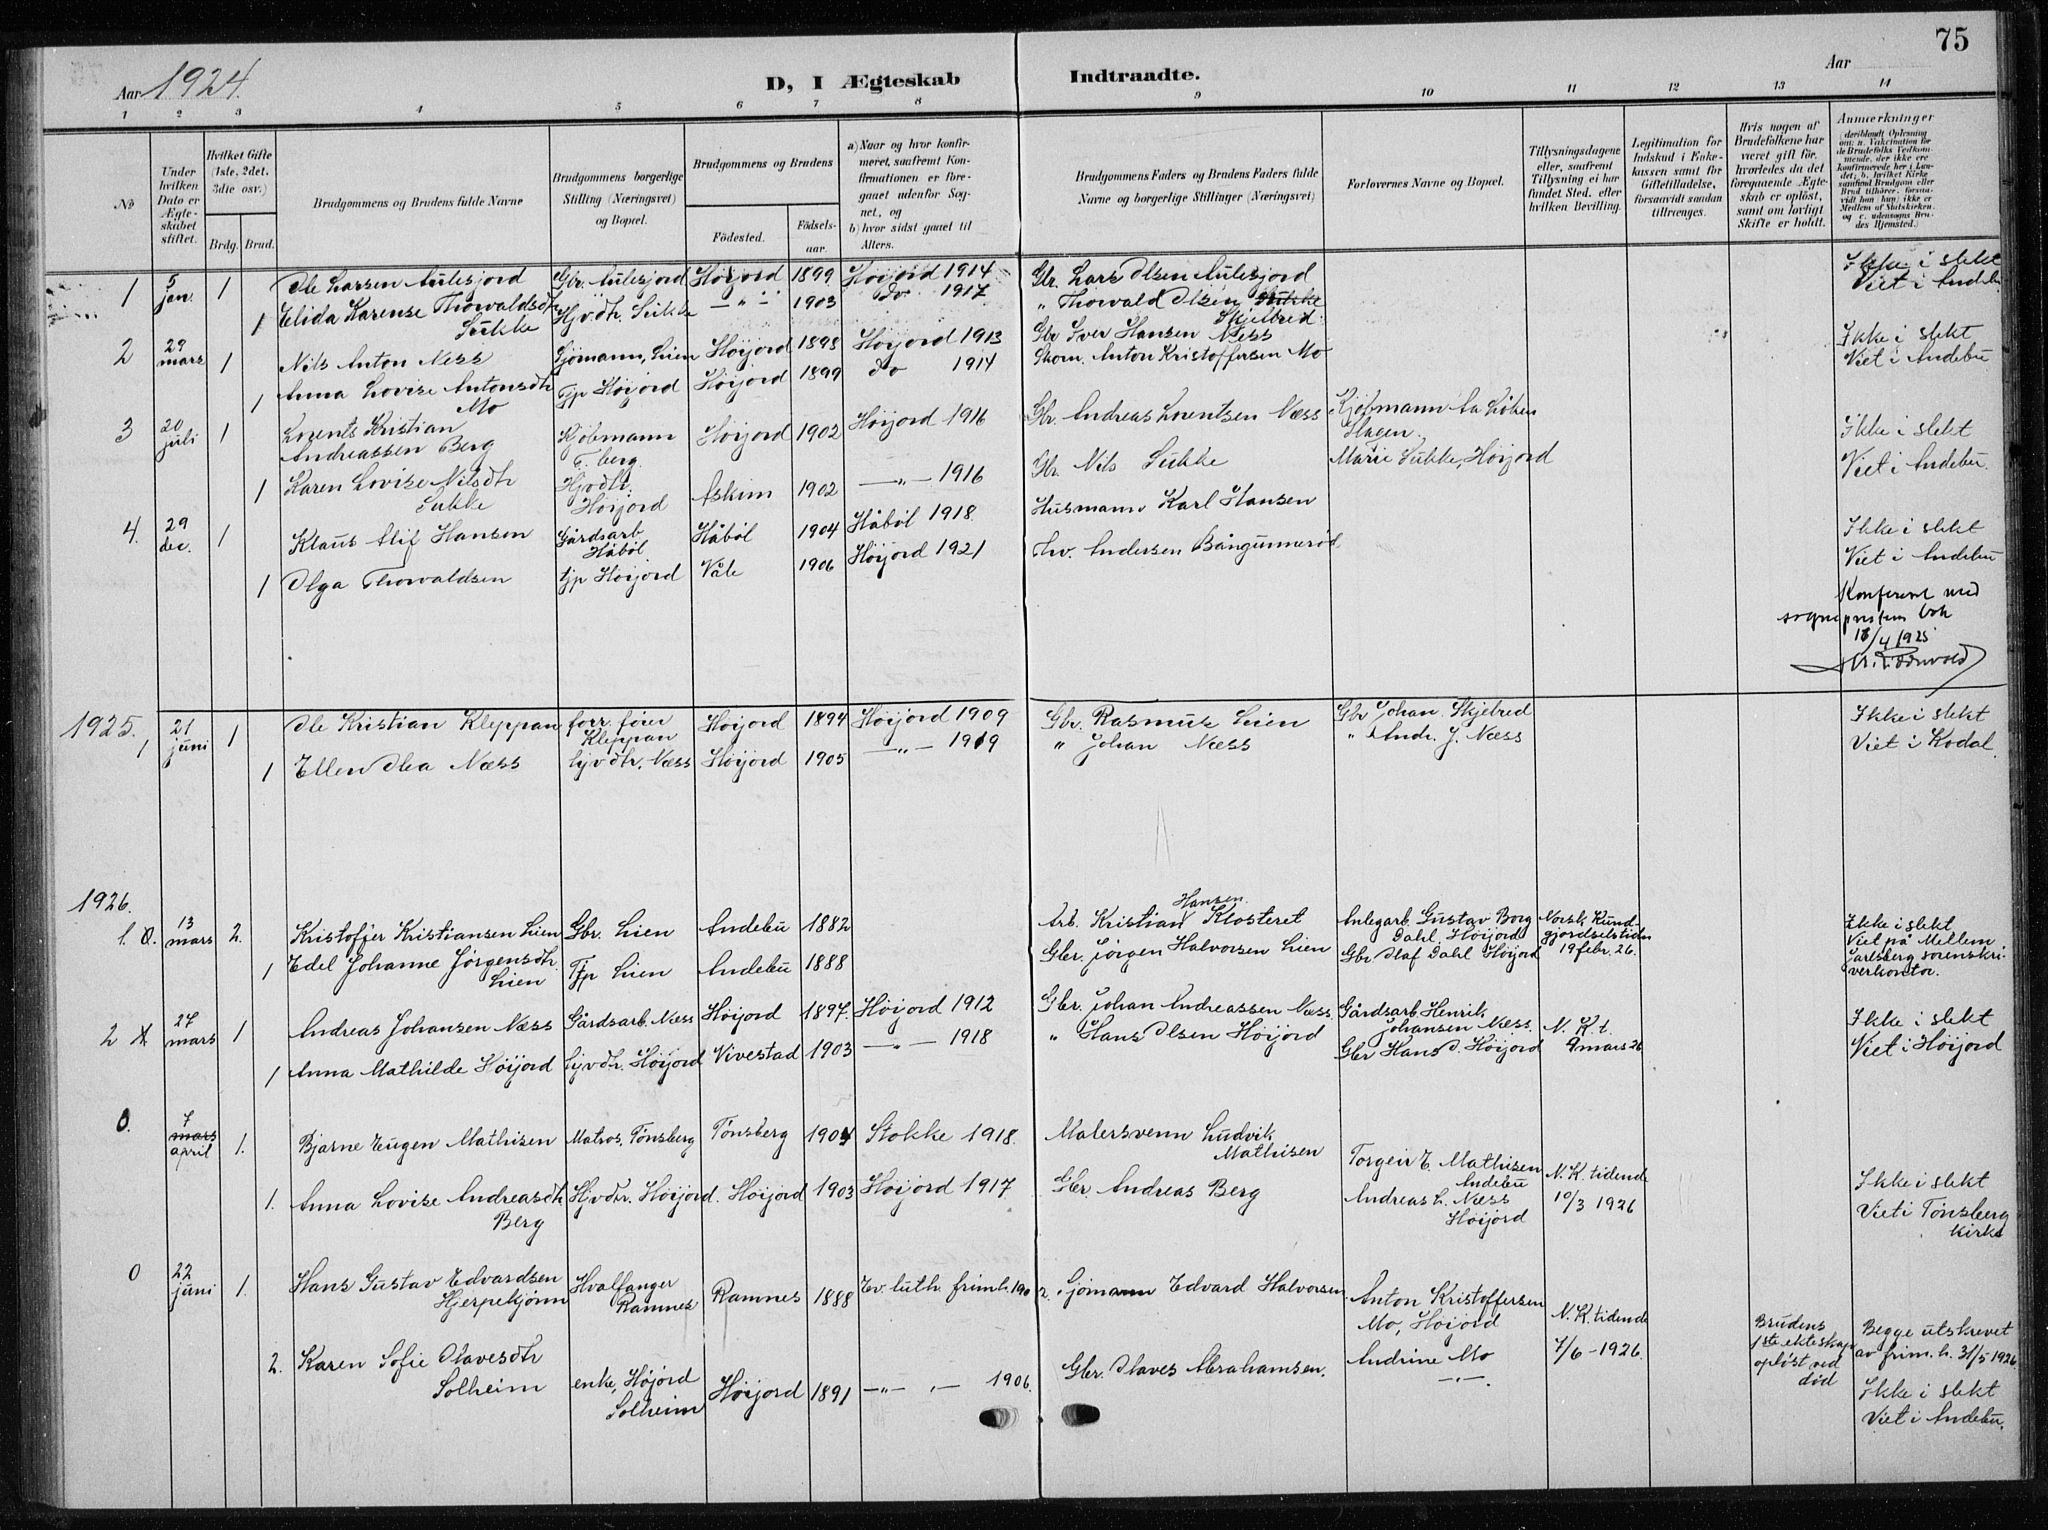 75
Aar 1924.
D, I Ægteskab Indtraadte.
Aar
1 2 3 4 5 6 7 8 9 10 11 12 13 14
No
Under hvilken Dato er Ægteskabet stiftet.
Hvilket Gifte (1ste, 2det, 3die osv.)
Brdg. Brud.
Brudgommens og Brudens fulde Navne
Brudgommens borgerlige Stilling (Næringsvei) og Bopæl.
Brudgommens og Brudens
Fødested. Fødselsaar.
a) Naar og hvor konfirmeret, saafremt Konfirmationen er foregaaet udenfor Sognet, og
b) hvor sidst gaaet til Alters.
Brudgommens Faders og Brudens Faders fulde Navne og borgerlige Stillinger (Næringsvei)
Forlovernes Navne og Bopæl.
Tillysningsdagene eller, saafremt Tillysning ei har fundet Sted, efter hvilken Bevilling.
Legitimation for Indskud i Enkekassen samt for Giftetilladelse, forsaavidt saadan tiltrænges.
Hvis nogen af Brudefolkene har været gift før, hvorledes da det foregaaende Ægteskab er opløst, samt om lovligt Skifte er holdt.
Anmærkninger
1 5 jan. 1 Ole Larsen Aulesjord Gbr. Aulesjord Höijord 1899 Höijord 1914 Gbr. Lars Olsen Aulesjord Ikke i slekt
1 Elida Karense Thorvaldsdtr Sukke Hjvdtr. Sukke —"— 1903 Do 1917 " Thorvald Olsen Sukke Skjelbred Viet i Andebu
2 29 mars 1 Nils Anton Ness Sjömann, Lien Höijord 1898 Höijord 1913 Gbr Iver Hansen Ness Ikke i slekt
1 Anna Lovise Antonsdtr Mo Tjp Höijord Höijord 1899 do 1914 Skom. Anton Kristoffersen Mo Viet i Andebu
3 20 juli 1 Lorents Kristian Andreassen Berg Kjöbmann Berg Höijord 1902 Höijord 1916 Gbr. Andreas Lorentsen Næss Kjöbmann Hagen Ikke i slekt
1 Karen Lovise Nilsdtr Sukke Hjvdtr. Höijord Askim 1902 —"— 1916 Gbr. Nils Sukke Marie Sukke, Höijord Viet i Andebu.
4. 29 dec. 1 Klaus Alif Hansen Gårdsarb. Håböl Håböl 1904 Håböl 1918 Husmann Karl Hansen Ikke i slekt
1 Olga Thorvaldsen tjp Höijord Våle 1906 Höijord 1921 Thv. Andersen Bångunnerød Viet i Andebu
Konferert med sogneprestens bok
18/4 1925
1925.
1 21 juni 1 Ole Kristian Kleppan forr. fører Kleppan Höijord 1894 Höijord 1909 Gbr. Rasmus Lien Gbr Johan Skjelred Ikke i slekt
1 Ellen Olea Næss hjvdtr. Næss Höijord 1905 —"— 1919 " Johan Næss " Andr. J. Næss Viet i Kodal
1926.
1. 13 mars 2. Kristoffer Kristiansen Lien Gbr. Lien Andebu 1882 Arb. Kristian Hansen Klosteret Anlegarb. Gustav Borg Dahl, Höijord Norsk Kundgjørdselstidn 19 febr. 26. Ikke i slekt
1 Edel Johanne Jørgensdtr. Lien Tjp Lien Andebu 1888 Gbr. Jørgen Halvorsen Lien Gbr. Olaf Dahl Höijord Viet på Mellem Jarlsberg sorenskriverkontor.
2 27 mars 1 Andreas Johansen Næss Gårdsarb. Næss Höijord 1897. Höijord 1912 Gbr. Johan Andreassen Næss. Gårdsarb. Henrik Johansen Næss. N. K. t. 9 mars 26 Ikke i slekt
1 Anna Mathilde Höijord hjvdtr. Höijord Vivestad 1903 —"— 1918 " Hans Olsen Höijord Gbr Hans O. Höijord Viet i Höijord
0. 7 mars april 1. Bjarne Eugen Mathisen Matros. Tönsberg Tönsberg 1904 Stokke 1918. Malersvenn Ludvik Mathisen Torgeir E. Mathisen Andebu N. K. tidende 10/3 1926 Ikke i slekt
1. Anna Lovise Andreasdtr Berg Hjvdtr. Höijord. Höijord 1903 Höijord 1917 Gbr. Andreas Berg Andreas L. Næss Höijord Viet i Tönsberg kirke
0 22 juni 1. Hans Gustav Edvardsen Hjerpekjönn Hvalfanger Ramnes Ramnes 1888 Ev. luth. frimh. 1902. Sjömann Edvard Halvorsen. Anton Kristoffersen Mo, Höijord N. K. tidende 7/6-1926. Brudens 1ste ekteskap opløst ved död Begge utskrevet av frim. h. 31/5 1926
2. Karen Sofie Olavesdtr Solheim enke, Höijord Solheim Höijord 1891 —"— 1906. Gbr. Olaves Abrahamsen. Andrine Mo —"— Ikke i slekt Viet i Andebu.